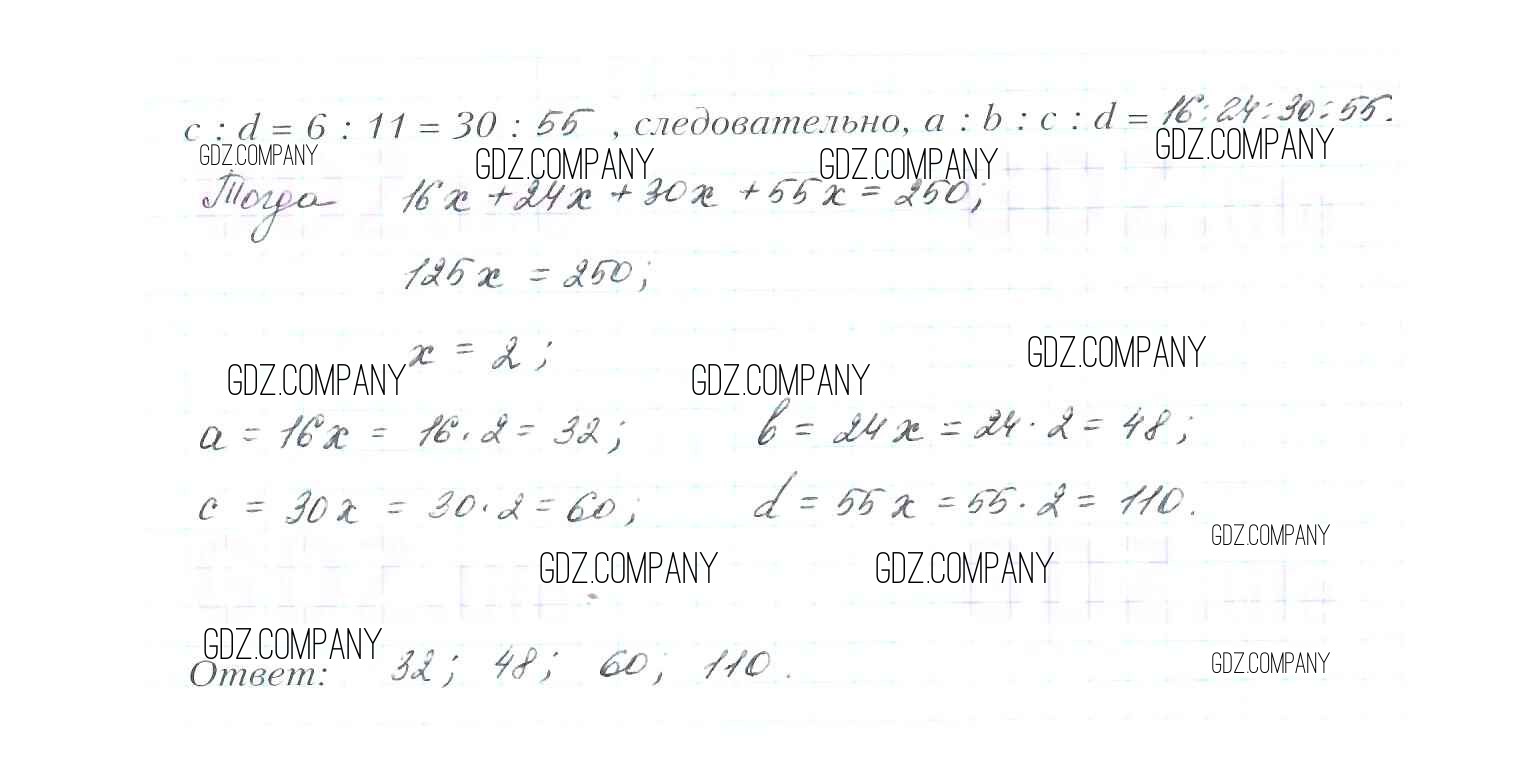 c : d = 6 : 11 = 30 : 55 , следовательно, a : b : c : d = 16 : 24 : 30 : 55.
GDZ.COMPANY GDZ.COMPANY GDZ.COMPANY GDZ.COMPANY
Тогда 16x + 24x + 30x + 55x = 250;
125x = 250;
x = 2 ;
GDZ.COMPANY GDZ.COMPANY GDZ.COMPANY
a = 16x = 16 · 2 = 32 ; b = 24x = 24 · 2 = 48 ;
c = 30x = 30 · 2 = 60 ; d = 55x = 55 · 2 = 110.
GDZ.COMPANY
GDZ.COMPANY GDZ.COMPANY
GDZ.COMPANY
Ответ: 32 ; 48 ; 60 ; 110.
GDZ.COMPANY